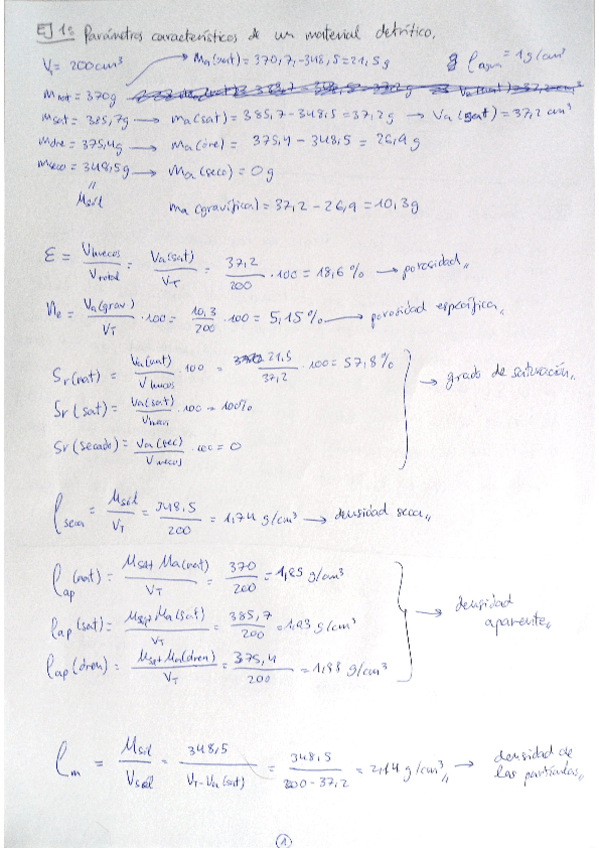 EJ 1: Parámetros característicos de un material detrítico.
V_T = 200cm³ → Ma(nat) = 370,7,-348,5 = 21,5 g & ρagua = 1g/cm³
Mnat = 370g
Msat = 385,7g → Ma(sat) = 385,7-348,5 = 37,2g → Va(sat) = 37,2 cm³
Mdre = 375,4g → Ma(dre) = 375,4 - 348,5 = 26,9g
Mseco = 348,5g → Ma(seco) = 0g
"
Msol
ma(gravífica) = 37,2 - 26,9 = 10,3g
ε = Vhuecos/Vtotal = Va(sat)/V_T = 37,2/200 · 100 = 18,6% → porosidad,,
ne = Va(grav)/V_T · 100 = 10,3/200 · 100 = 5,15% → porosidad específica,,
Sr(nat) = Va(nat)/Vhuecos · 100 = 21,5/37,2 · 100 = 57,8%
Sr(sat) = Va(sat)/Vhuec · 100 = 100%
→ grado de saturación,,
Sr(secado) = Va(sec)/Vhuecos · 100 = 0
ρseca = Msól/V_T = 348,5/200 = 1,74 g/cm³ → densidad seca,,
ρap(nat) = Msól+Ma(nat)/V_T = 370/200 = 1,85 g/cm³
ρap(sat) = Msól+Ma(sat)/V_T = 385,7/200 = 1,93 g/cm³
→ densidad aparente,,
ρap(dren) = Msól+Ma(dren)/V_T = 375,4/200 = 1,88 g/cm³
ρm = Msól/Vsól = 348,5/V_T-Va(sat) = 348,5/200-37,2 = 2,14 g/cm³,, → densidad de las partículas,,
1